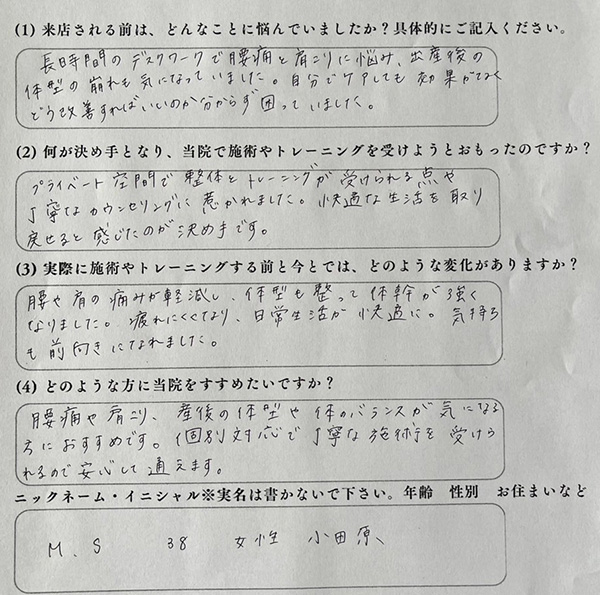 (1) 来店される前は、どんなことに悩んでいましたか？具体的にご記入ください。
長時間のデスクワークで腰痛と肩こりに悩み、出産後の
体型の崩れも気になっていました。自分でケアしても効果がなく
どう改善すればいいのか分からず困っていました。
(2) 何が決め手となり、当院で施術やトレーニングを受けようとおもったのですか？
プライベート空間で整体とトレーニングが受けられる点や
丁寧なカウンセリングに惹かれました。快適な生活を取り
戻せると感じたのが決め手です。
(3) 実際に施術やトレーニングする前と今とでは、どのような変化がありますか？
腰や肩の痛みが軽減し、体型も整って体幹が強く
なりました。疲れにくくなり、日常生活が快適に。気持ち
も前向きになれました。
(4) どのような方に当院をすすめたいですか？
腰痛や肩こり、産後の体型や体のバランスが気になる
方におすすめです。個別対応で丁寧な施術を受けら
れるので安心して通えます。
ニックネーム・イニシャル※実名は書かないで下さい。年齢　性別　お住まいなど
M.S　38　女性　小田原